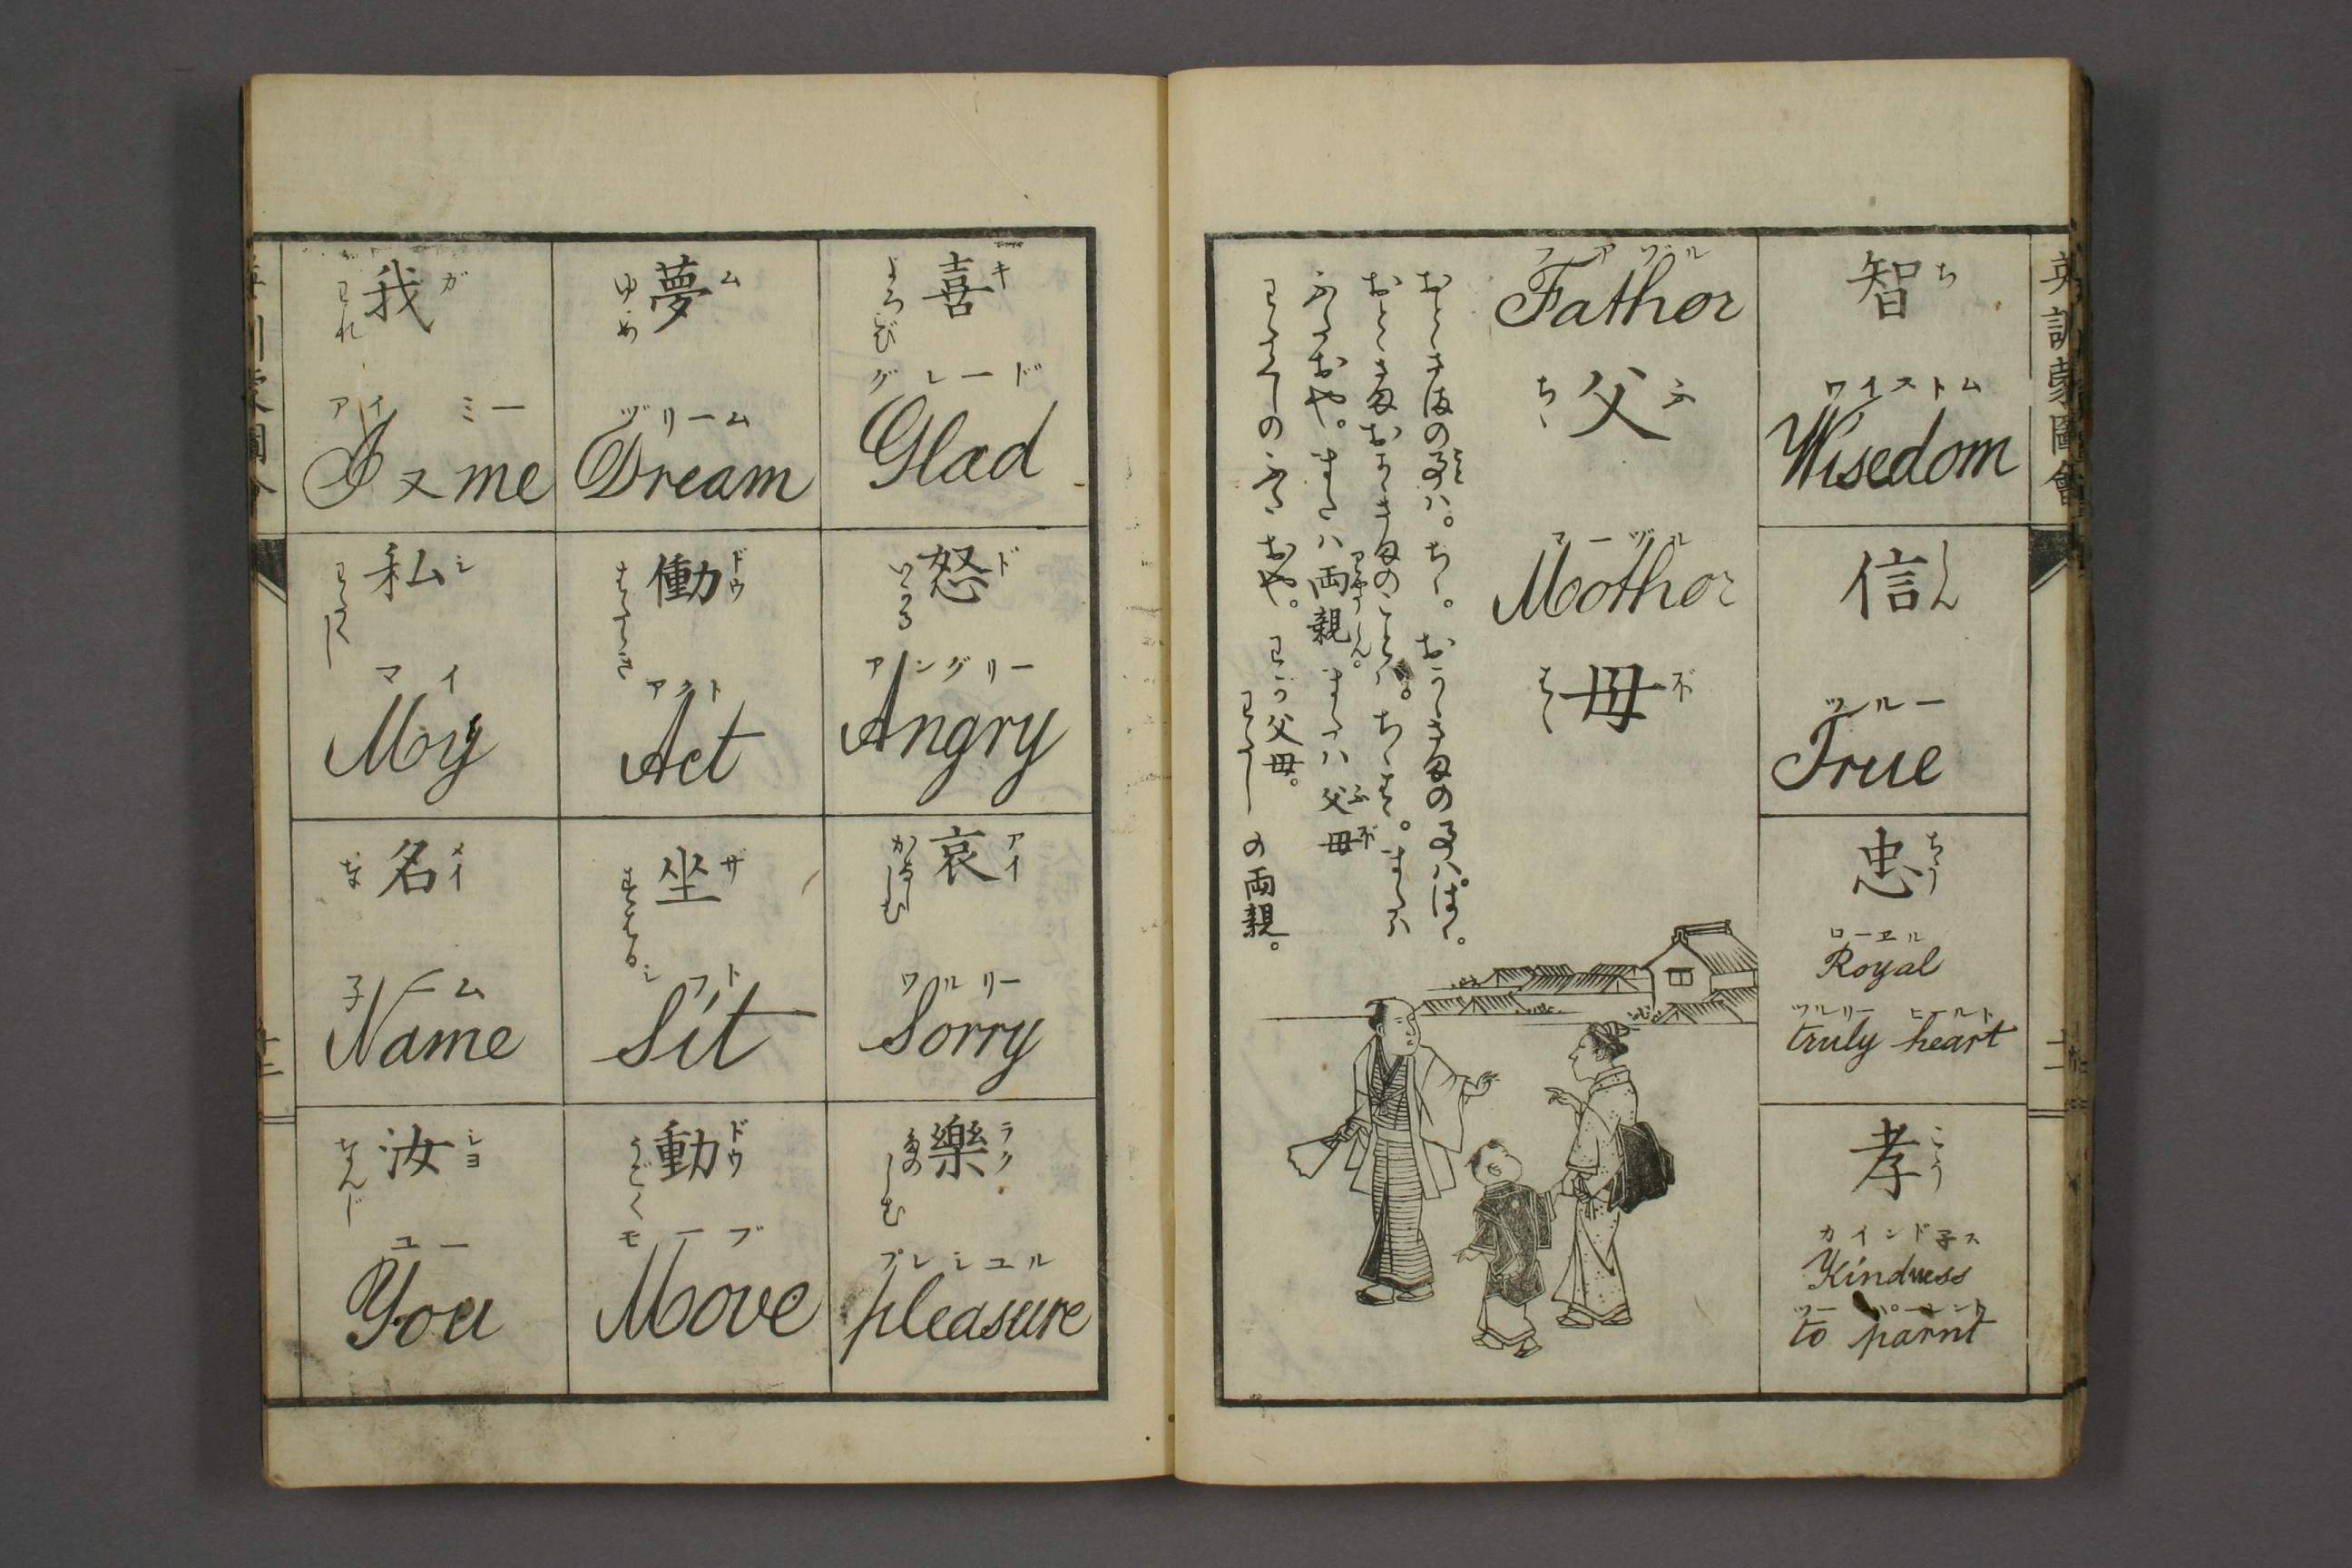 英訓蒙圖會
智 ち
ワイストム
Wisedom
信 しん
ツルー
True
忠 ちう
ローヱル
Royal
ツルリー ヒールト
truly heart
孝 こう
カインド子ス
Kindness
ツー パーレント
to parnt
フアヅル
Father
父 ふ
ちゝ
マーヅル
Mother
母 ボ
はゝ
おとゝさまの事ハ。ちゝ。おかゝさまの事ハ。はゝ。
おとゝさまおかゝさまのことハ。ちゝはゝ。または
ふたおや。または両親 または父母
わたくしのふたおや。わが父母。
わたくしの両親。
喜 キ
よろこび
グレード
Glad
怒 ド
いかる
アングリー
Angry
哀 アイ
かなしむ
ワルリー
Sorry
樂 ラク
たのしむ
プレシユル
pleasure
夢 ム
ゆめ
ヅリーム
Dream
働 ドウ
はたらき
アクト
Act
坐 ザ
すはる
シフト
Sit
動 ドウ
うごく
モーブ
Move
我 ガ
われ
アイ ミー
I 又 me
私 シ
わたくし
マイ
My
名 メイ
な
子ーム
Name
汝 ジヨ
なんじ
ユー
You